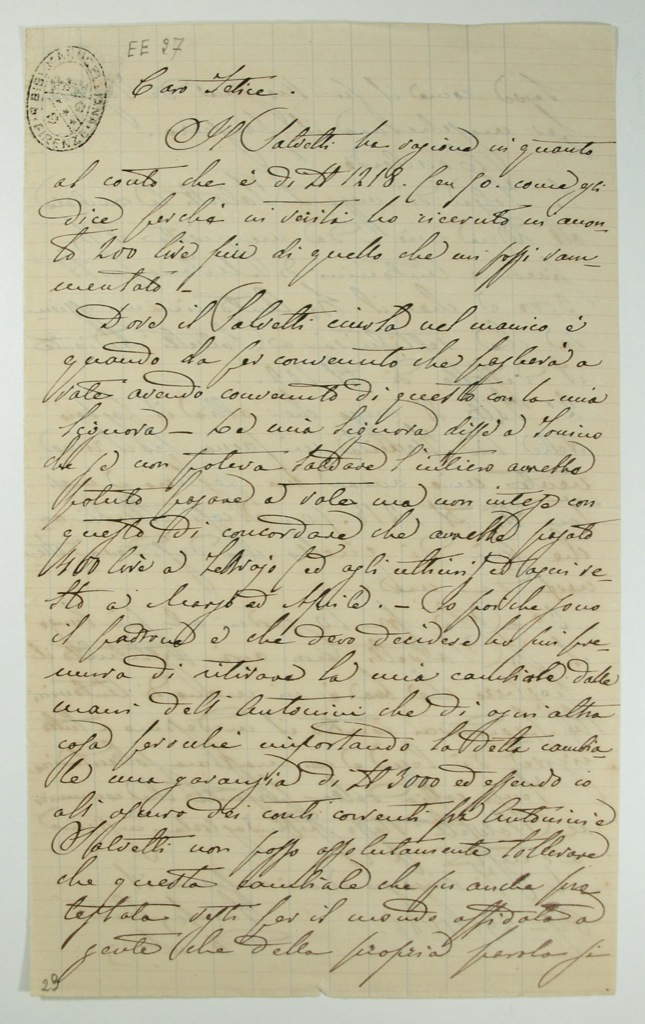 EE 27
Caro Felice.
Il Salvetti ha ragione in quanto
al conto che è di £ 1218. Cen 50. come gli
dice perchè in verità ho ricevuto in accon-
to 200 lire più di quello che mi fossi ram-
mentato –
Dove il Salvetti nel manico è
quando da per convenuto che pagherà a
rate avendo convenuto di questo con la mia
Signora – La mia Signora disse a Tonino
che se non poteva saldare l'intiero avrebbe
potuto pagare a rate ma non intese con
questo di concordare che avrebbe pagato
400 lire a Febbrajo (ed agli ultimi) ed ogni re-
sto a Marzo ed Aprile. – Io poi che sono
il padrone e che devo decidere ho più pre-
mura di ritirare la mia cambiale dalle
mani dell'Antonini che di ogni altra
cosa perocchè importando la detta cambia-
le una garanzia di £ 3000 ed essendo io
all'oscuro dei conti correnti fra Antonini e
Salvetti non posso assolutamente tollerare
che questa cambiale che fu anche pro
testata resti per il mondo affidata a
gente che della propria parola si
29